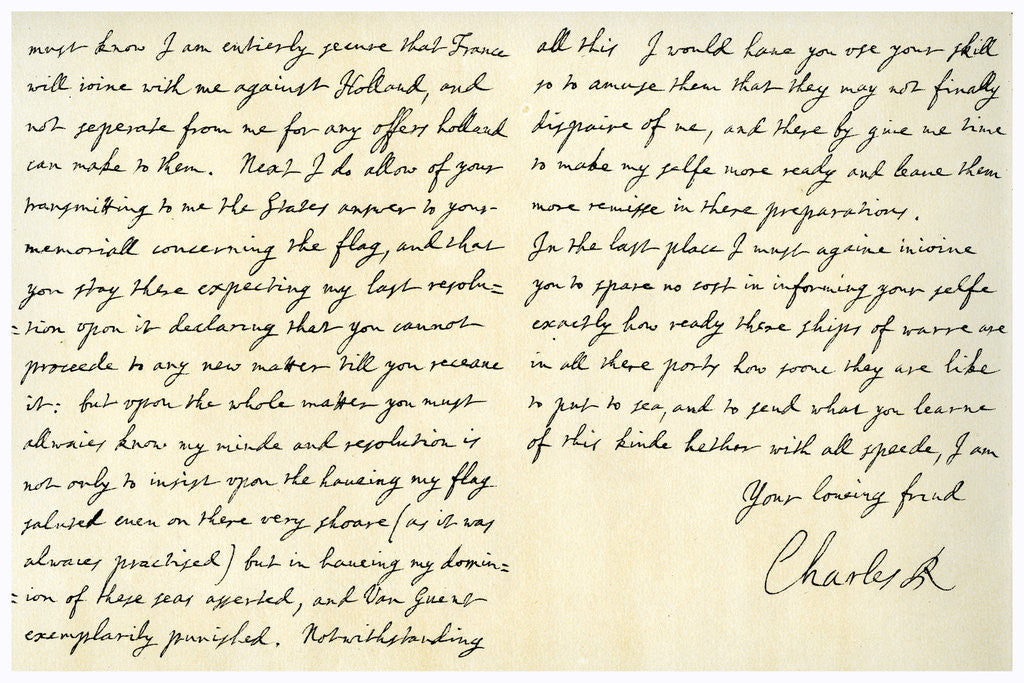 must know I am entierly secure that France
will ioine with me against Holland, and
not seperate from me for any offers holland
can make to them. Next I do allow of your
transmitting to me the States answer to your
memoriall concerning the flag, and that
you stay there expecting my last resolu=
=tion upon it declaring that you cannot
proceede to any new matter till you receave
it: but upon the whole matter you must
allwaies know my minde and resolution is
not only to insist upon the haveing my flag
saluted even on there very shoare (as it was
alwaies practised) but in haveing my domin=
=ion of these seas asserted, and Van Guent
exemplarily punished. Notwithstanding
all this I would have you use your skill
so to amuse them that they may not finally
dispaire of me, and there by give me time
to make my selfe more ready and leave them
more remisse in there preparations.
In the last place I must againe inioine
you to spare no cost in informing your selfe
exactly how ready there ships of warre are
in all there ports how soone they are like
to put to sea, and to send what you learne
of this kinde hether with all speede, I am
Your loveing frind
Charles R